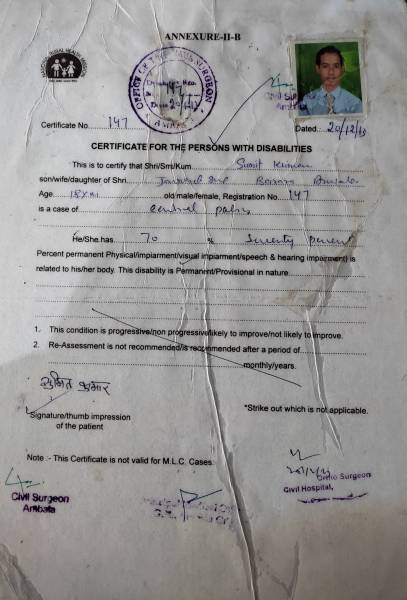 ANNEXURE-II-B
OFFICE OF THE CIVIL SURGEON
147
AMBALA
Civil Surgeon
Ambala
Certificate No. 147
Dated. 20/12/13
CERTIFICATE FOR THE PERSONS WITH DISABILITIES
This is to certify that Shri/Smt/Kum. Sumit Kumar
son/wife/daughter of Shri
Age. 18 Yrs. old male/female, Registration No. 147
is a case of
He/She has. 70 % Seventy percent
Percent permanent Physical/impiarment/visual inpiarment/speech & hearing impairment) is
related to his/her body. This disability is Permanent/Provisional in nature
1. This condition is progressive/non progressive/likely to improve/not likely to improve.
2. Re-Assessment is not recommended/is recommended after a period of
monthly/years.
सुमित कुमार
Signature/thumb impression
of the patient
*Strike out which is not applicable.
Note :- This Certificate is not valid for M.L.C. Cases.
Civil Surgeon
Ambala
Ortho Surgeon
Civil Hospital,